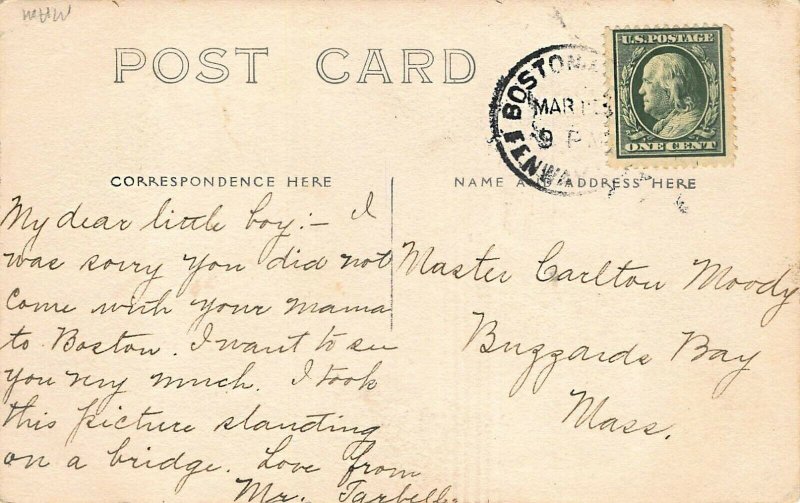 POST CARD
BOSTON
MAR
9 P
FENWAY
U.S. POSTAGE
ONE CENT
CORRESPONDENCE HERE
NAME ADDRESS HERE
My dear little boy:- I
was sorry you did not
come with your mama
to Boston. I want to see
you very much. I took
this picture standing
on a bridge. Love from
Mr. Tarbell.
Master Carlton Moody
Buzzards Bay
Mass.